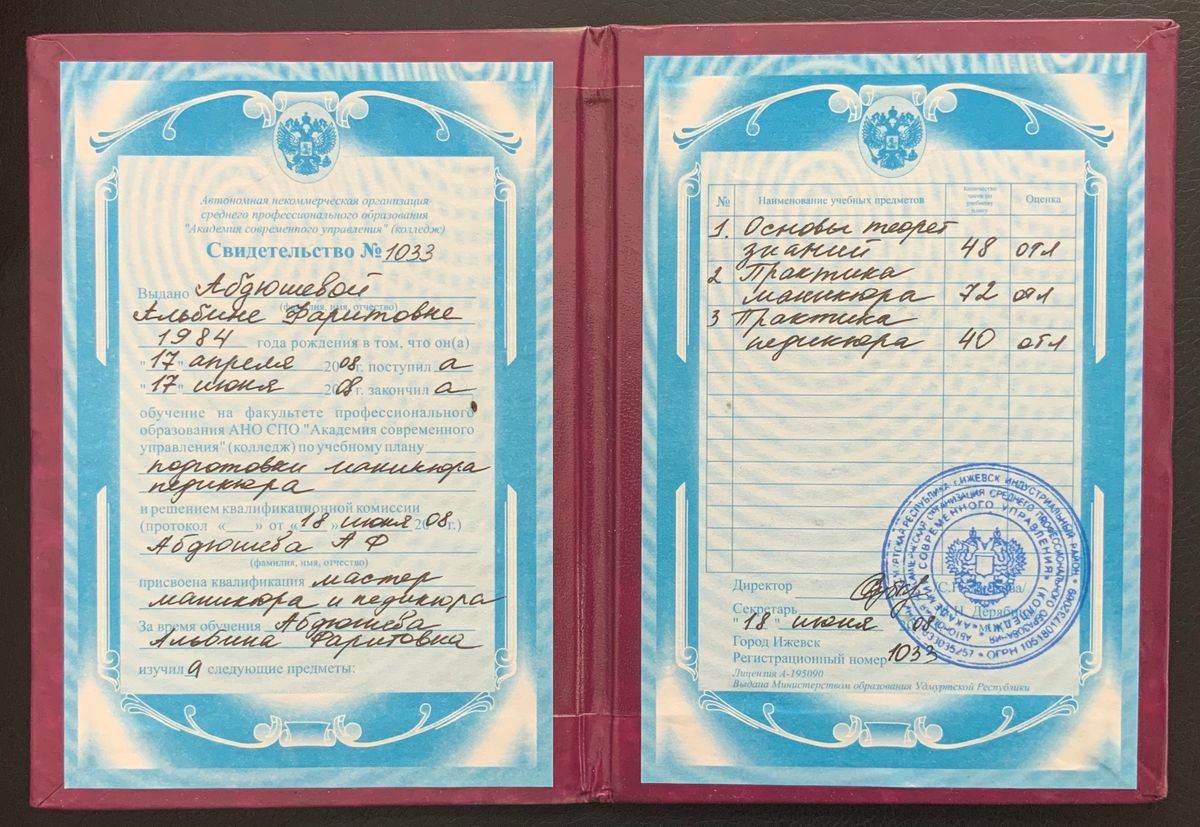 Автономная некоммерческая организация
среднего профессионального образования
"Академия современного управления" (колледж)
Свидетельство № 1033
Выдано Абдюшевой
(фамилия, имя, отчество)
Альбине Фаритовне
1984 года рождения в том, что он(а)
"17" апреля 2008г. поступил а
"17" июня 2008г. закончил а
обучение на факультете профессионального
образования АНО СПО "Академия современного
управления" (колледж) по учебному плану
подготовки маникюра
педикюра
и решением квалификационной комиссии
(протокол «___» от «18» июня 2008г.)
Абдюшева А Ф
(фамилия, имя, отчество)
присвоена квалификация мастер
маникюра и педикюра
За время обучения Абдюшева
Альбина Фаритовна
изучил а следующие предметы:
№ Наименование учебных предметов Количество часов по учебному плану Оценка
1. Основы теорет
знаний 48 отл
2 Практика
маникюра 72 отл
3 Практика
педикюра 40 отл
Директор
Секретарь
"18" июня 08
Город Ижевск
Регистрационный номер 1033
Лицензия А-195090
Выдана Министерством образования Удмуртской Республики
РЕСПУБЛИКА г.ИЖЕВСК ИНДУСТРИАЛЬНЫЙ РАЙОН
ОРГАНИЗАЦИЯ СРЕДНЕГО ПРОФЕССИОНАЛЬНОГО ОБРАЗОВАНИЯ
СОВРЕМЕННОГО УПРАВЛЕНИЯ" (КОЛЛЕДЖ)
ОГРН 1051801732069